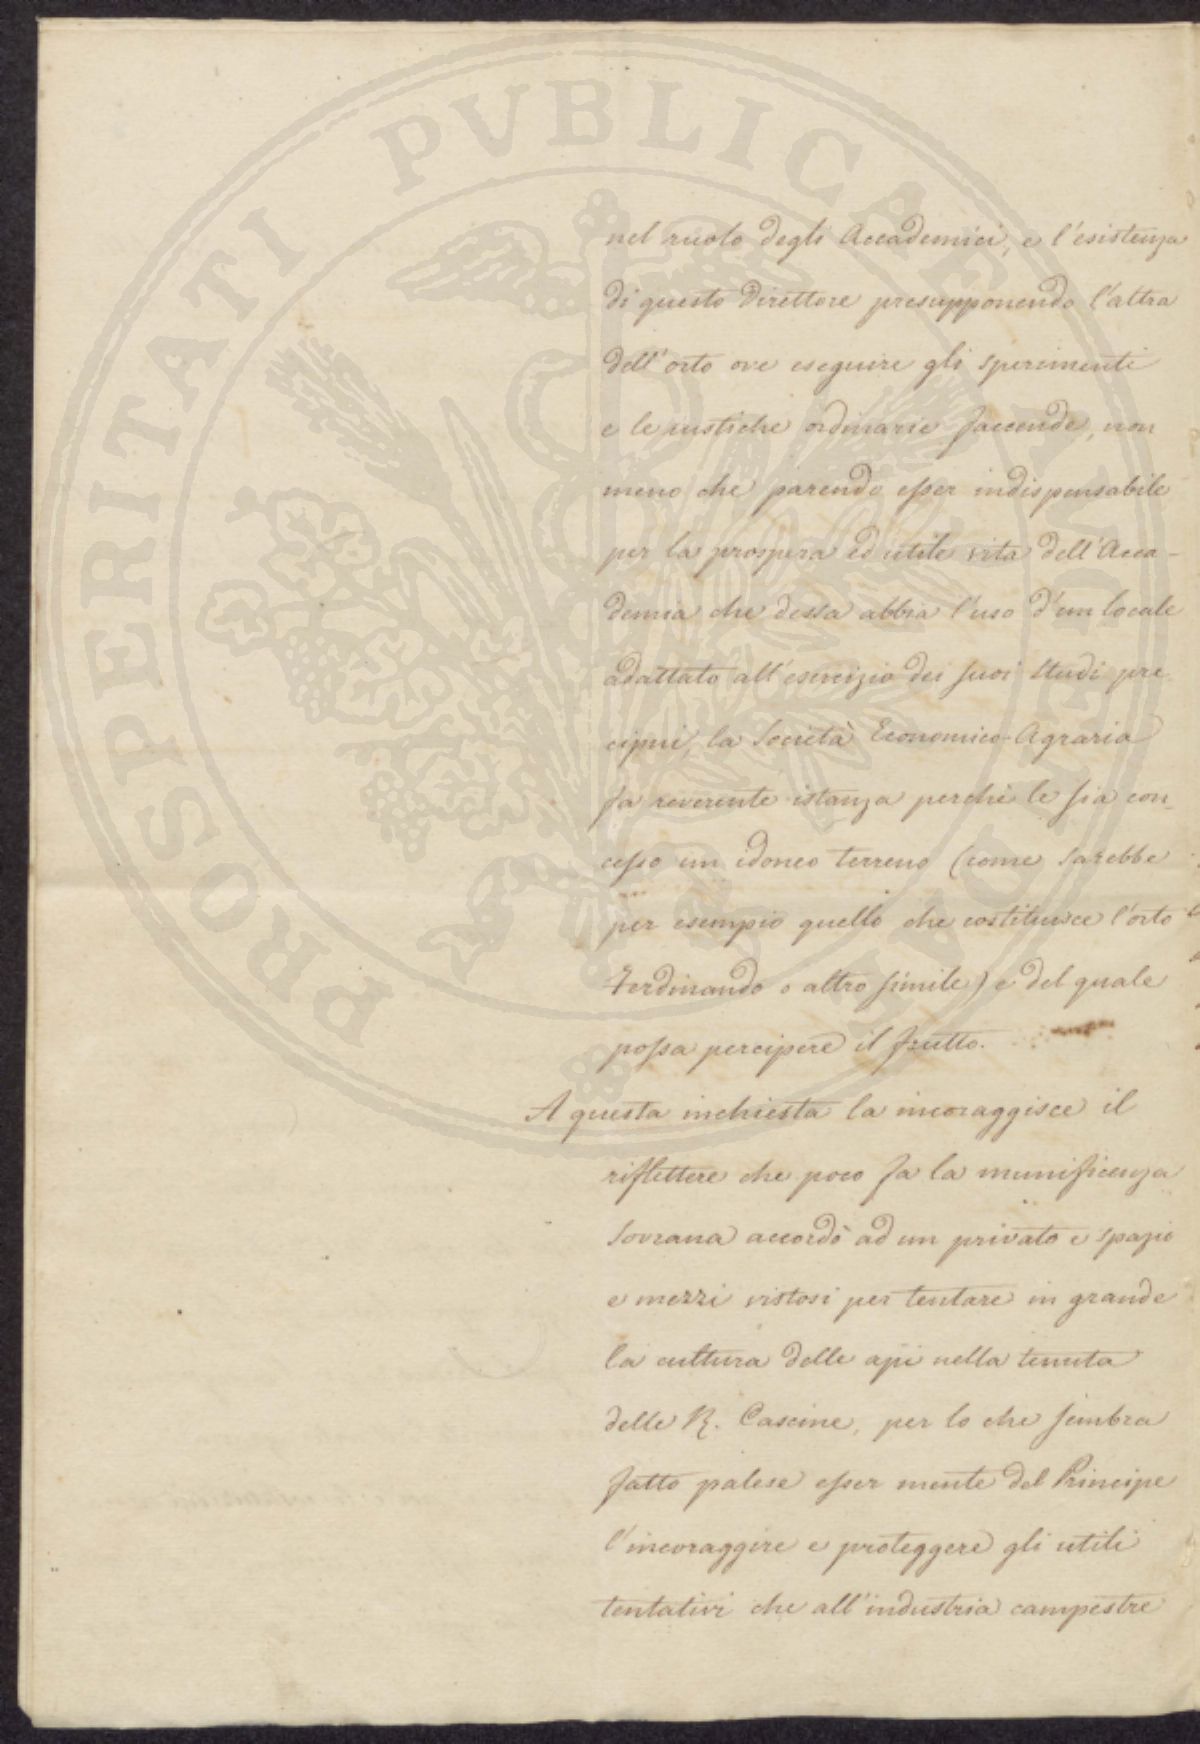 PROSPERITATI PVBLICAE AVGENDAE
nel ruolo degli Accademici, e l'esistenza
di questo Direttore presupponendo l'altra
dell'orto ove eseguire gli sperimenti
e le rustiche ordinarie faccende, non
meno che parendo esser indispensabile
per la prospera ed utile vita dell'Acca-
demia che dessa abbia l'uso d'un locale
adattato all'esercizio dei suoi studi pre
cipui, la Società Economico-Agraria
fa reverente istanza perché le sia con_
cesso un idoneo terreno (come sarebbe
per esempio quello che costituisce l'orto
Ferdinando o altro simile) e del quale
possa percipere il frutto.
A questa inchiesta la incoraggisce il
riflettere che poco fa la munificenza
Sovrana accordò ad un privato e spazio
e mezzi vistosi per tentare in grande
la cultura delle api nella tenuta
delle R. Cascine, per lo che sembra
fatto palese esser mente del Principe
l'incoraggire e proteggere gli utili
tentativi che all'industria campestre